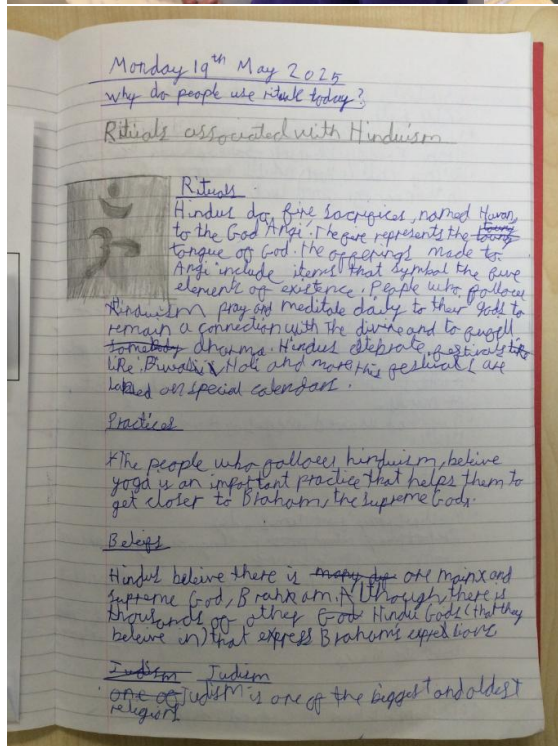 Monday 19th May 2025
Why do people use rituals today?
Rituals associated with Hinduism
Rituals
Hindus do fire sacrifices, named Havan,
to the God Angi. The fire represents the
tongue of God. The offerings made to
Angi include items that symbol the five
elements of existence. People who follow
Hinduism pray and meditate daily to their gods to
remain a connection with the divine and to fulfill
somebody dharma. Hindus celebrate festivals like
like Diwali, Holi and more this festivals are
based on special calendars.
Practices
The people who follows hinduism, beleive
yoga is an important practice that helps them to
get closer to Braham, the supreme Gods.
Beleifs
Hindus beleive there is one main and
supreme God, Braham. Although there is
thousands of other God Hindu Gods (that they
beleive in) that express Brahams
Judism Judism
one of Judism is one of the biggest and oldest
religions